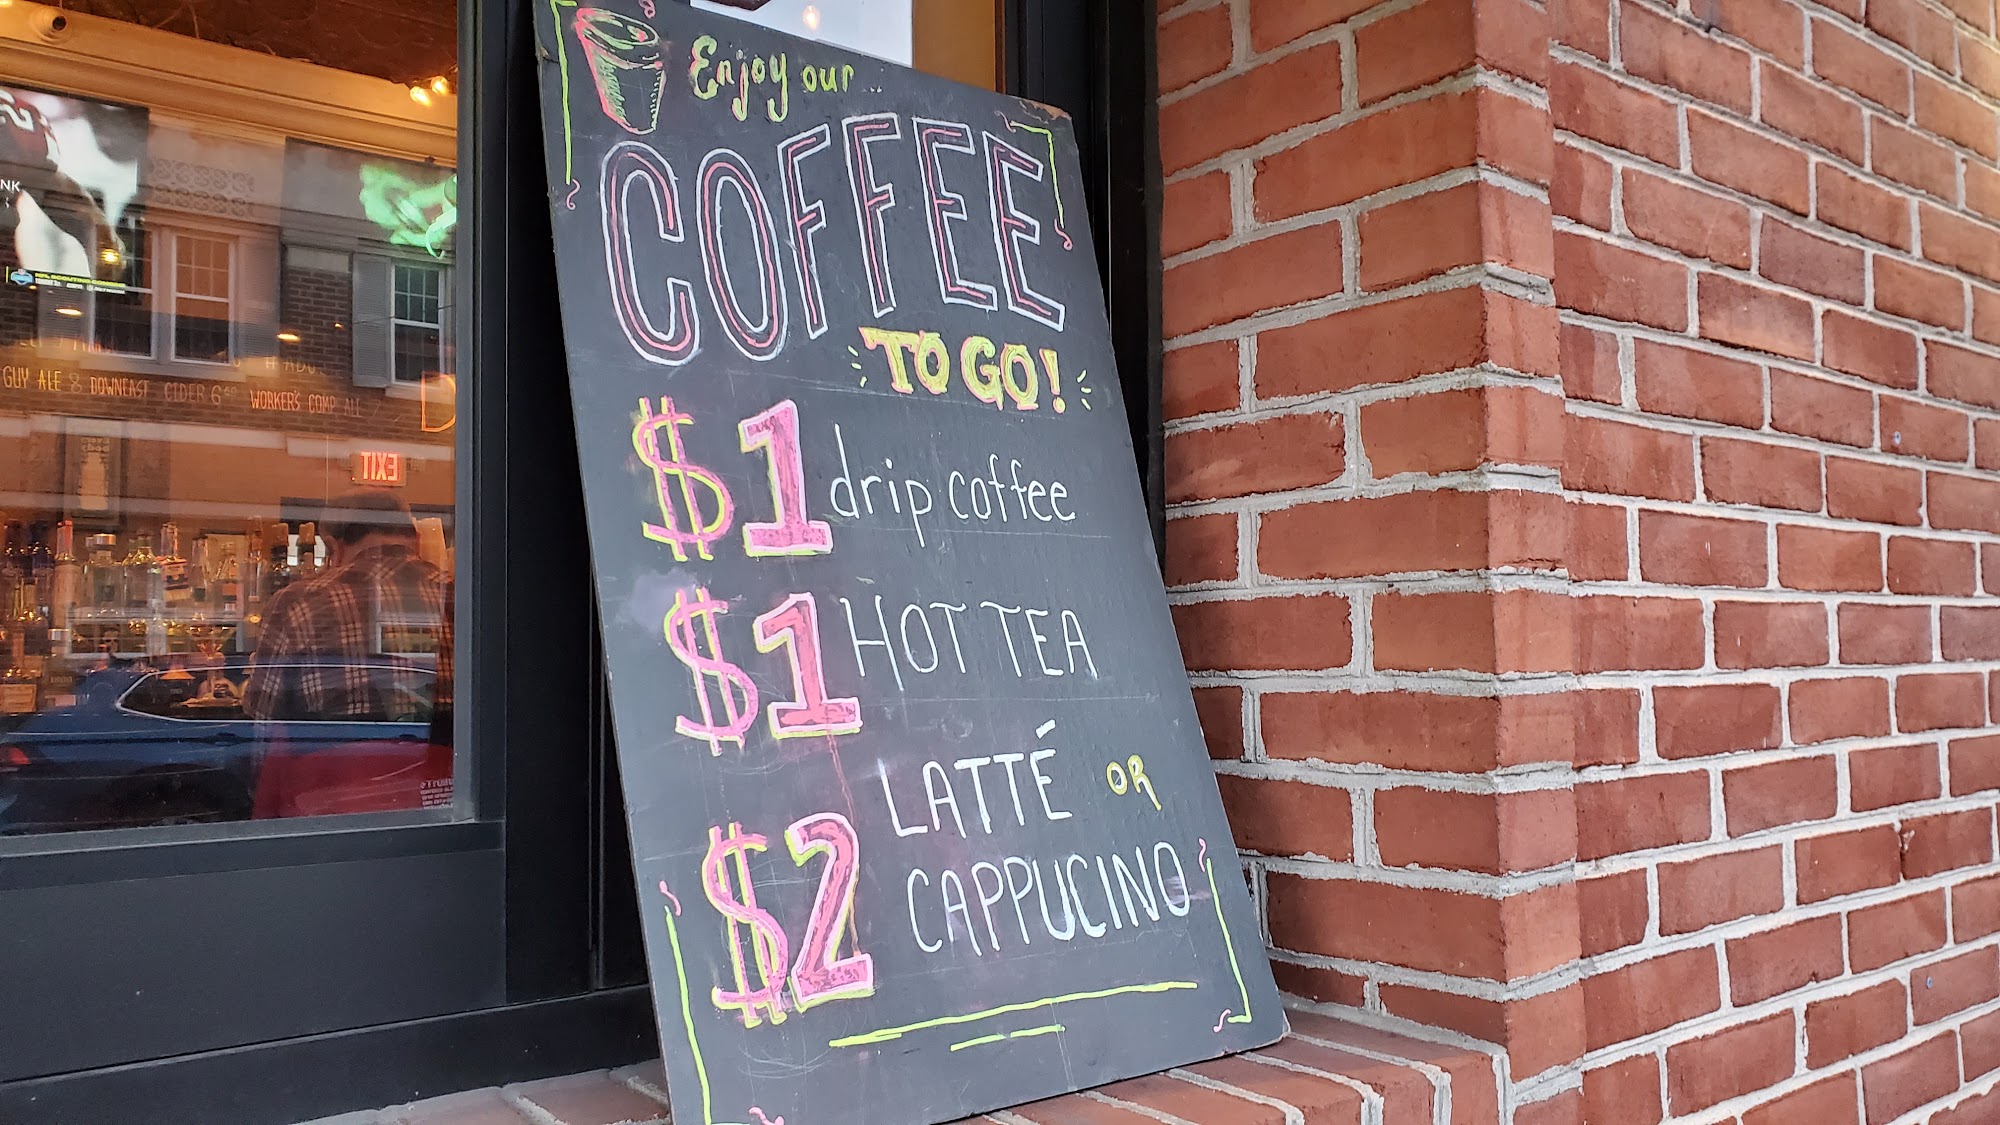 Enjoy our
COFFEE
TO GO!
$1 drip coffee
$1 HOT TEA
$2 LATTÉ OR
CAPPUCINO
NK
NFL SCOUTING COMBINE
GUY ALE 8 DOWNEAST CIDER 6 WORKER'S COMP ALE
D
EXIT